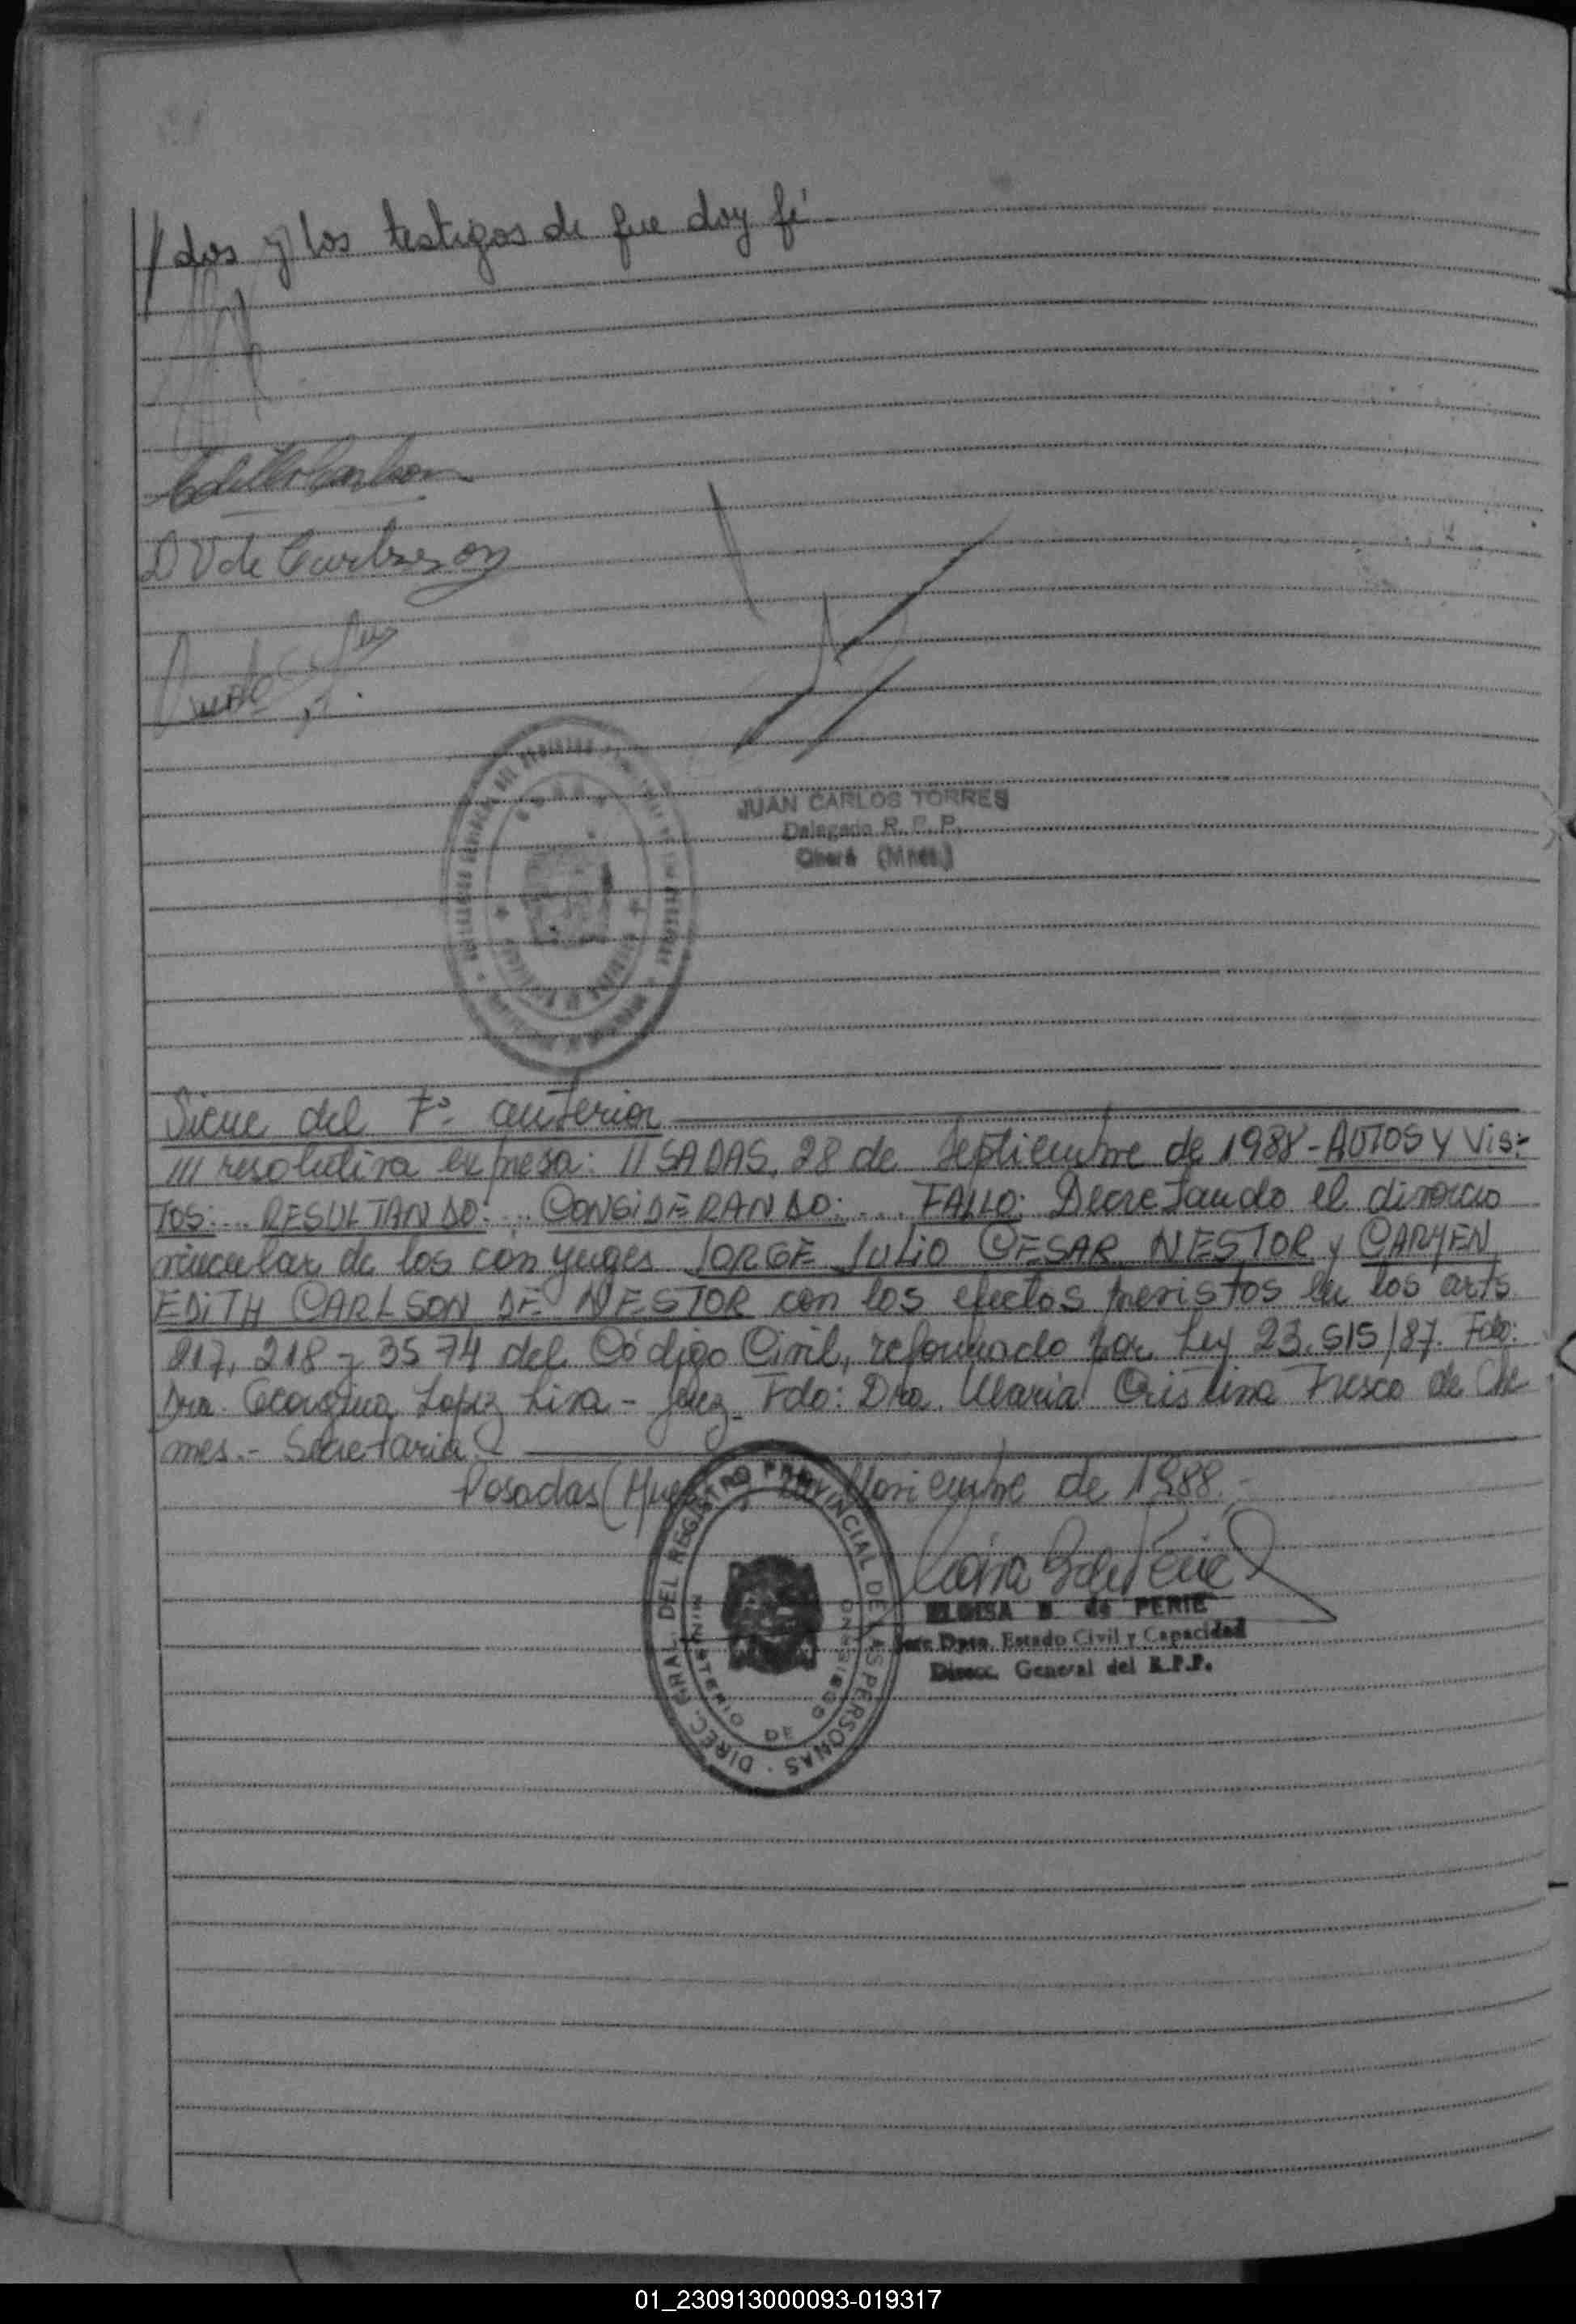 //dos y los testigos de que doy fé.
Edith Carlson
D V de Carlson
JUAN CARLOS TORRES
Delegado R. P. P.
Oberá (Mnes.)
Sicue del Fº anterior
/// resolutiva expresa: "SADAS, 28 de Septiembre de 1988 - AUTOS Y VIS:
TOS:... RESULTANDO:... CONSIDERANDO:... FALLO: Decretando el divorcio
vincular de los conyuges JORGE JULIO CESAR NESTOR y CARMEN
EDITH CARLSON DE NESTOR con los efectos previstos en los arts.
217, 218 y 3574 del Código Civil, reformado por Ley 23.515/87. Fdo:
Dra. Georgina Lopez Liva - Juez. Fdo: Dra. Maria Cristina Fresco de Che
mes.- Secretaria
Posadas (Mnes) Noviembre de 1988.-
ELOISA B. de PERIE
Jefe Dpto. Estado Civil y Capacidad
Direcc. General del R.P.P.
DIREC. GRAL. DEL REGISTRO PROVINCIAL DE LAS PERSONAS
MINISTERIO DE GOBIERNO
01_230913000093-019317